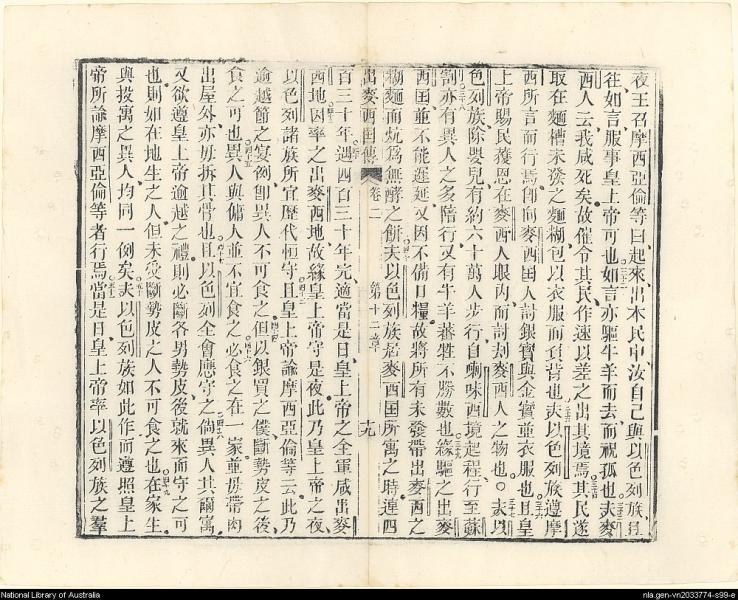 夜王召摩西亞倫等曰起來出本民中汝自己與以色列族且
往如言服事皇上帝可也如言亦驅牛羊而去而祝孤也夫麥
西人云我咸死矣故催令其民作速以差之出其境焉其民遂
取在麵槽未發之麵糊包以衣服而負背也夫以色列族遵摩
西所言而行焉卽向麥西國人討銀寶與金寶並衣服也且皇
上帝賜民獲恩在麥西人眼內而討刦麥西人之物也夫以
色列族除嬰兒有約六十萬人步行自喇味西境起程行至蘇
割亦有異人之多陪行又有牛羊蕃牲不勝數也緣驅之出麥
西国並不能遲延又因不備口糧故將所有未發帶出麥西之
糊麵而炕爲無酵之餅夫以色列族居麥西国所寓之時連四
出麥西国傳 卷二 第十二章 十九
百三十年遇四百三十年完適當是日皇上帝之全軍咸出麥
西地因率之出麥西地故緣皇上帝守是夜此乃皇上帝之夜
以色列諸族所宜歷代恒守且皇上帝諭摩西亞倫等云此乃
逾越節之宴例卽異人不可食之但以銀買之僕斷勢皮之後
食之可也異人與傭人並不宜食之必食之在一家並毋帶肉
出屋外亦毋拆其骨也且以色列全會應守之倘異人其爾寓
又欲遵皇上帝逾越之禮則必斷各男勢皮後就來而守之可
也則如在地生之人但未受斷勢皮之人不可食之也在家生
與投寓之異人均同一例矣夫以色列族如此作而遵照皇上
帝所諭摩西亞倫等者行焉當是日皇上帝率以色列族之羣
National Library of Australia
nla.gen-vn2033774-s99-e